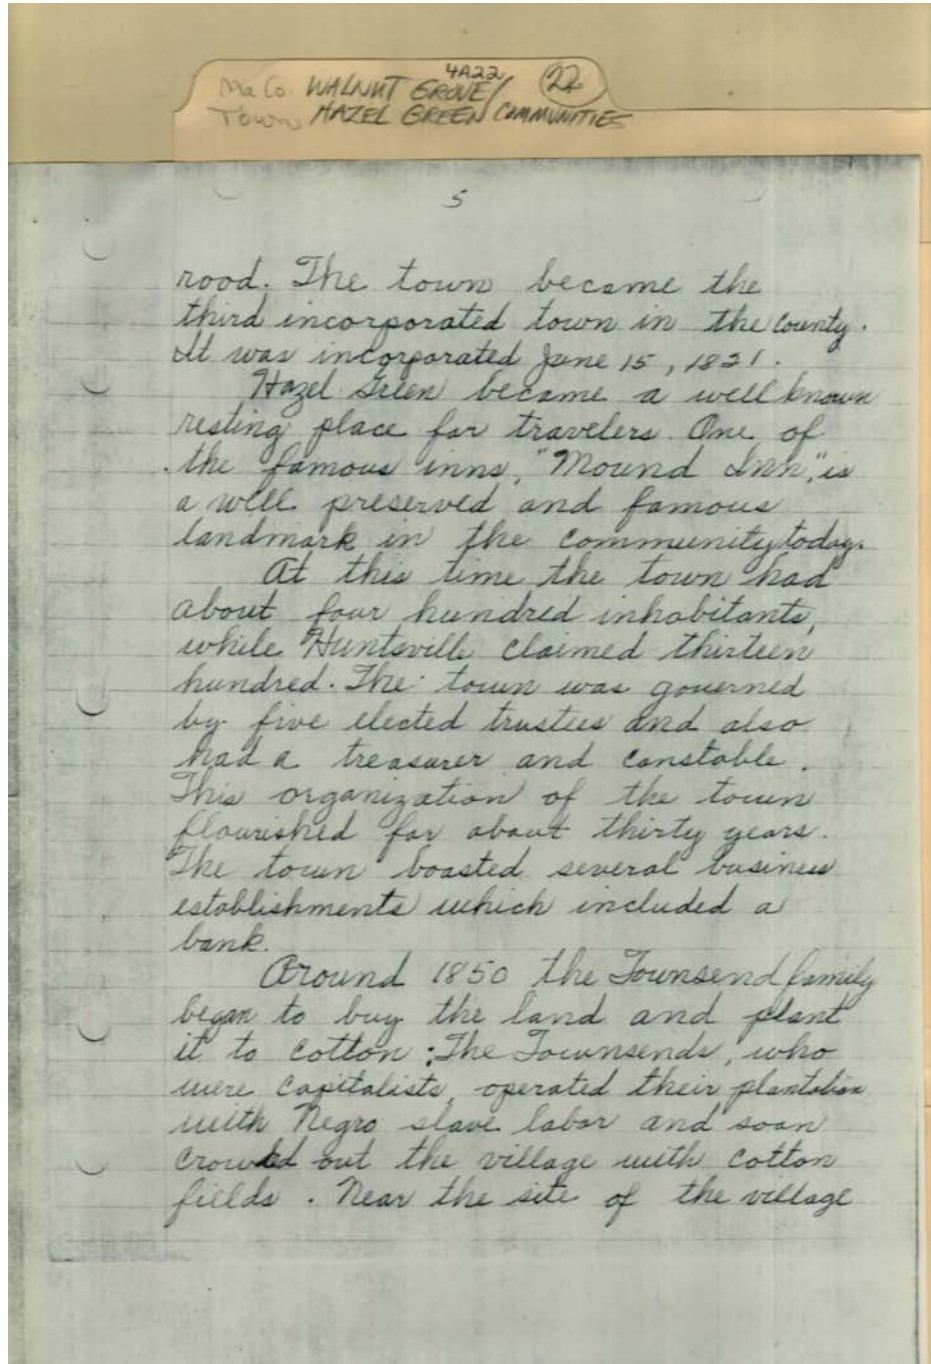 4A22
Ma Co WALNUT GROVE/ 22
Town HAZEL GREEN COMMUNITIES
5
rood. The town became the
third incorporated town in the county.
It was incorporated June 15, 1821.
Hazel Green became a well known
resting place for travelers. One of
the famous inns, "Mound Inn", is
a well preserved and famous
landmark in the community today.
At this time the town had
about four hundred inhabitants,
while Huntsville claimed thirteen
hundred. The town was governed
by five elected trustees and also
had a treasurer and constable.
This organization of the town
flourished for about thirty years.
The town boasted several business
establishments which included a
bank.
Around 1850 the Townsend family
began to buy the land and plant
it to cotton; The Townsends, who
were capitalists, operated their plantation
with Negro slave labor and soon
crowded out the village with cotton
fields. Near the site of the village